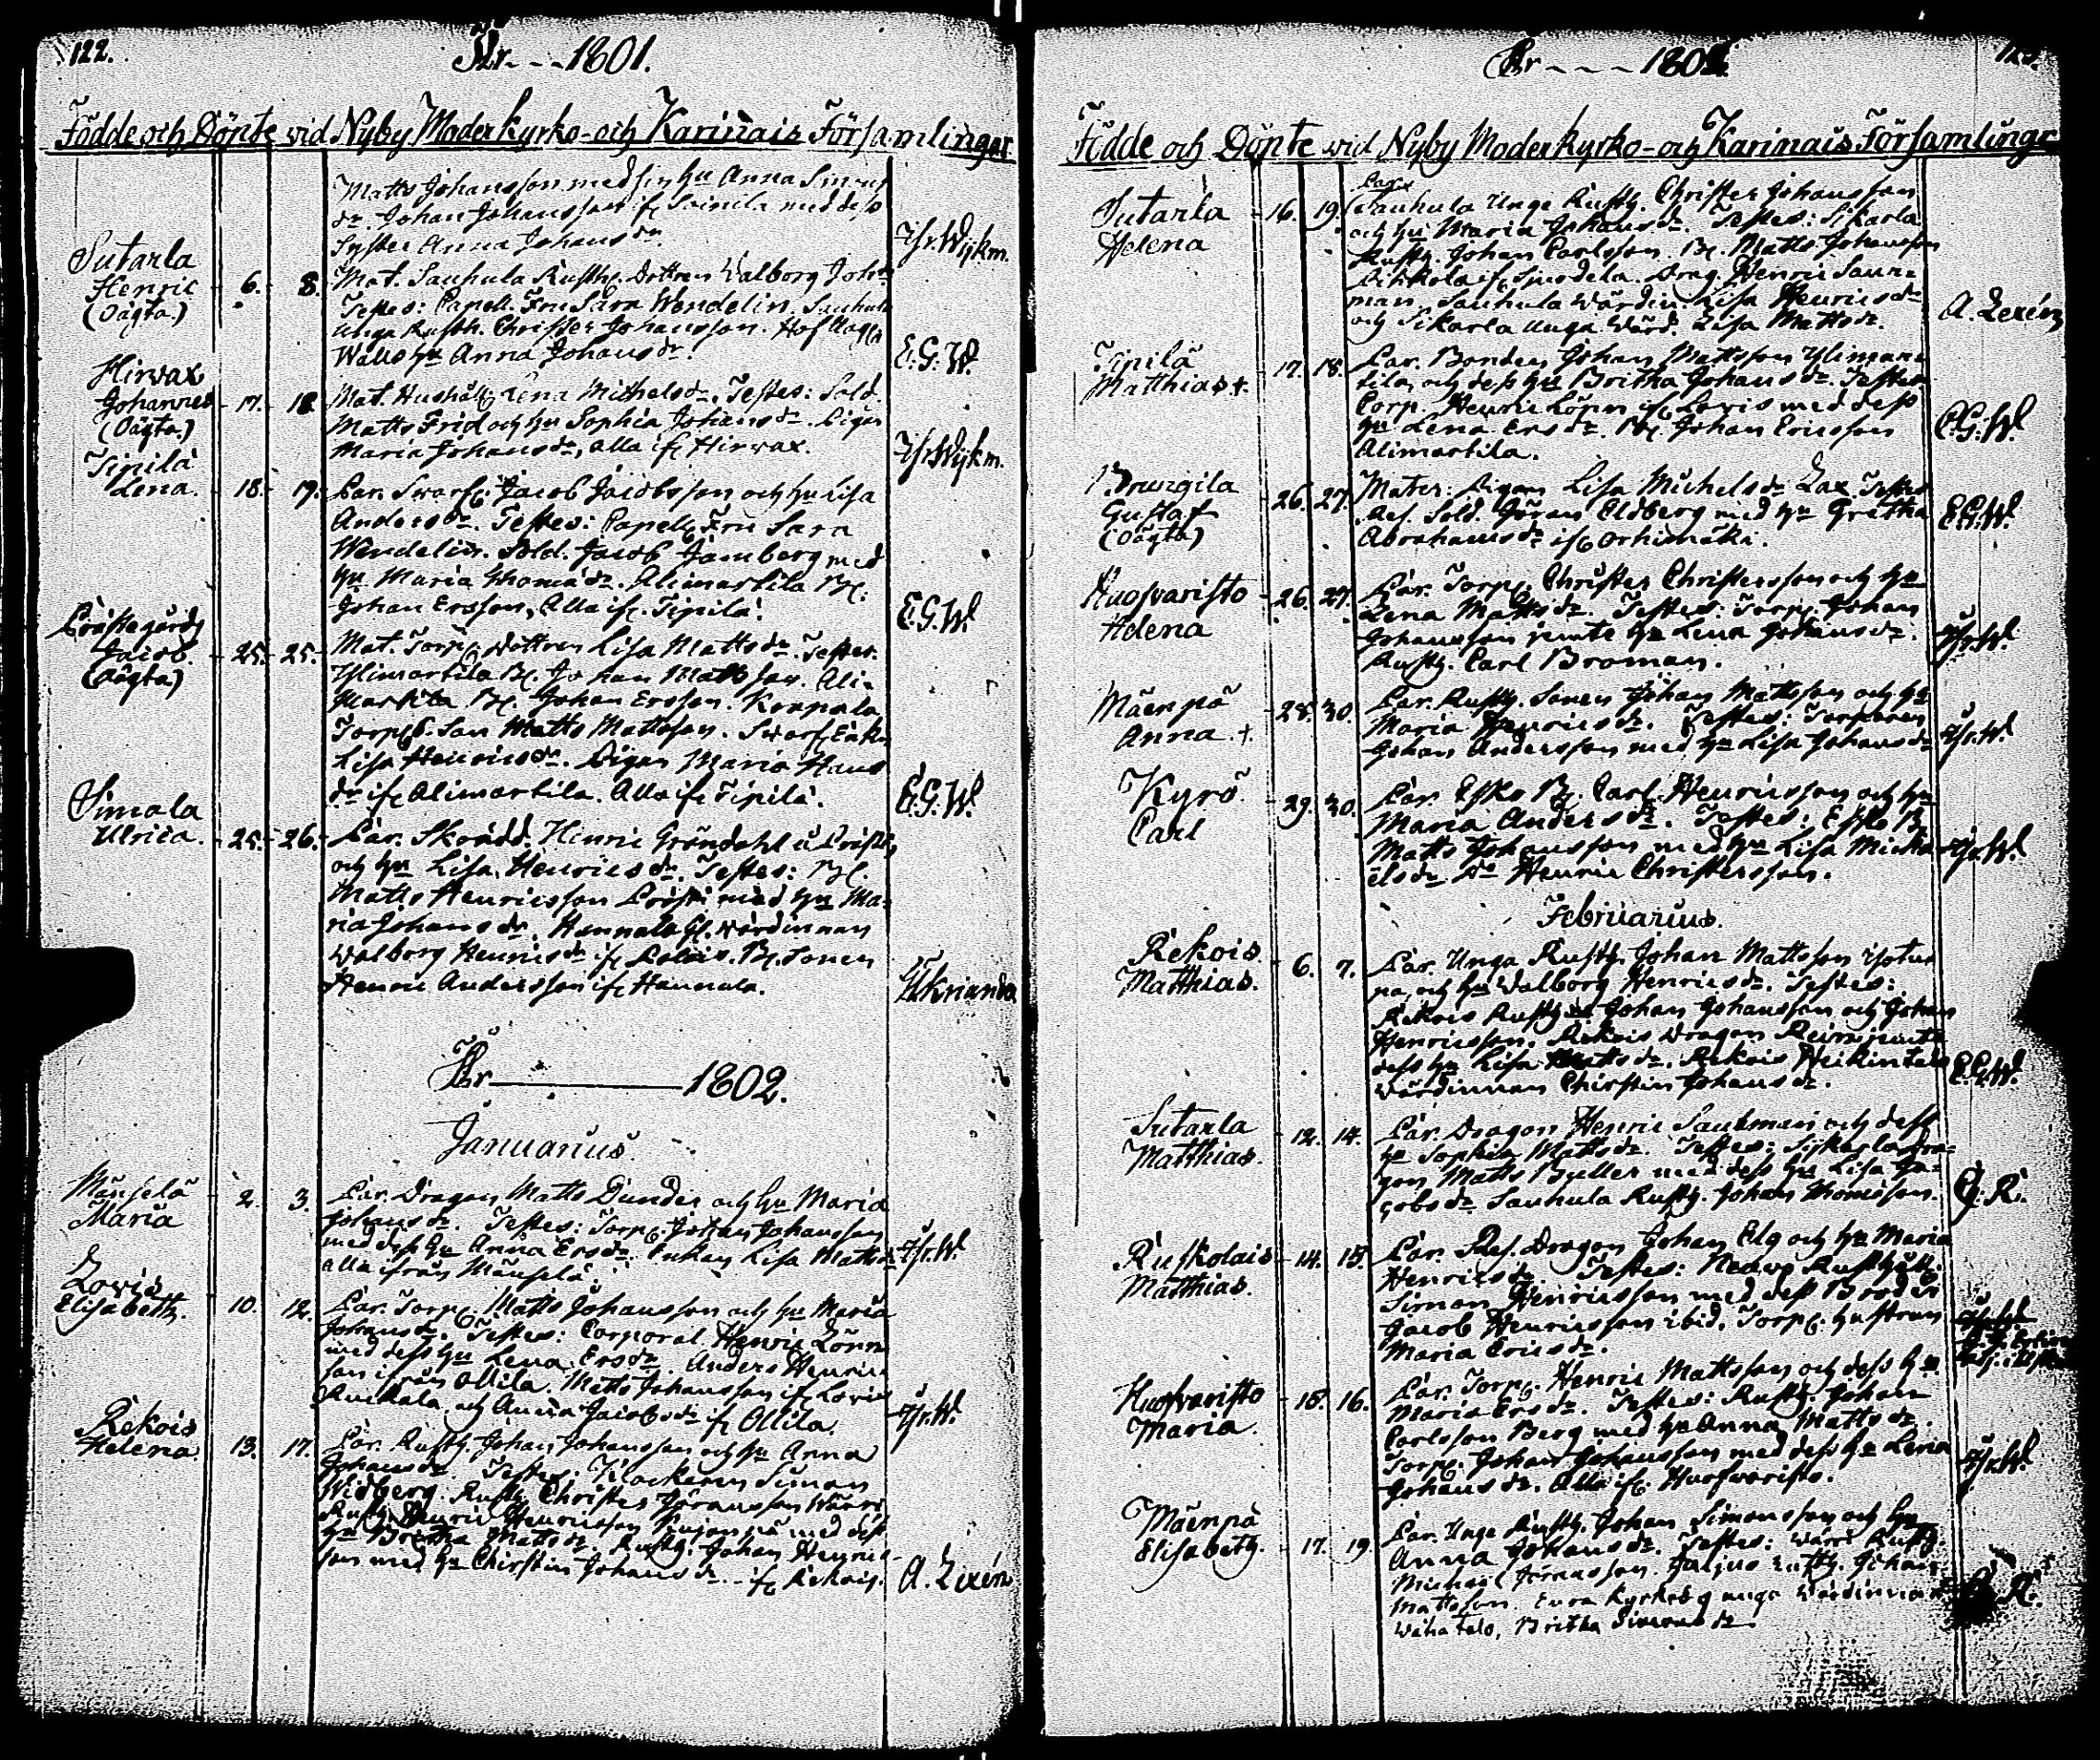 122.
År - - - 1801.
Födde och Dönte vid Nyby Moderkyrko- och Karinais Församlingar
Matts Johansson med sin hu Anna Simons
dr. Johan Johansson if. Soinila med dess
Syster Anna Johansdr.
Hr. Wykm.
Sutarla
Henric
(Oägta.)
6. 8. Mat. Sauhula Rusth. Dottren Walborg Johsdr
Testes: Capell. Fru Sara Wendelin, Sauhula
Unga Rusth. Christer Johansson. Hof
Walls hu Anna Johansdr.
E.G.W.
Hirvax
Johannes
(Oägta.)
17. 18. Mat. Hushåll. Lena Michelsdr. Testes: Sold.
Matts Frid och hu Sophia Johansdr. Pigan
Maria Johansdr, alla if. Hirvax.
Hr. Wykm.
Tipilä
Lena.
18. 19. Par. Swarf. Jacob Jacobsson och hu Lisa
Andersdr. Testes: Capell. Fru Sara
Wendelin. Sold. Jacob Jamberg med
hu Maria Thomædr. Alimartila B.
Johan Ersson, Alla if. Tipilä.
E.G.W.
Prästegårds
Jacob.
(Oägta)
25. 25. Mat. Torp. Dottren Lisa Mattsdr. Testes:
Ylimartila B. Johan Mattsson. Ali-
Martila B. Johan Ersson. Korpala
Torp. Son Matts Mattsson. Swarf. Enkn
Lisa Henricsdr. Pigan Maria Hans
dr if. Alimartila. Alla if. Tipilä.
E.G.W.
Simala
Ulrica.
25. 26. Par. Skrädd. Henric Gröndahl å Prästg.
och hu Lisa Henricsdr. Testes: B.
Matts Henricsson Prästi med hu Ma-
ria Johansdr. Hannala Gl. wärdinnan
Walborg Henricsdr if. B. Sonen
Henric Andersson if. Hannula.
Ukrianda
År 1802.
Januarius.
Mänselä
Maria
2. 3. Par. Dragon Matts Dunder och hu Maria
Johansdr. Testes: Torp. Johan Johansson
med dess hu Anna Ersdr. Enkan Lisa Mattsdr
alla ifrån Mänselä.
Hr. W.
Lovis
Elisabeth.
10. 12. Par. Torp. Matts Johansson och hu Maria
Johansdr. Testes: Corporal Henric Lönn
med dess hu Lena Ersdr. Anders Henrics
son ifrån Ollila. Matts Johansson if. Lovis
Ruckala, och Anna Jacobsdr if. Ollila.
Hr. W.
Rekois
Helena.
13. 17. Par. Rusth. Johan Johansson och hu Anna
Johansdr. Testes: Klockaren Simon
Widberg. Rusth. Christer Göransson Wäärs
Rusth. Henric Henricsson med dess
hu Britha Mattsdr. Rusth. Johan Henrics-
son med hu Christin Johansdr. if. Rekois.
A. Lexén
År - - - 1802.
Födde och Dönte wid Nyby Moderkyrko- och Karinais Församlingr
Sutarla
Helena
16. 19. Par.
Sauhula Unge Rusth. Christer Johansson
och hu Maria Johansdr. Testes: Sikarla
Rusth. Johan Carlsson. B. Matts Johansson
if. Drag. Henric Saux-
man. Sauhula Wärdin. Lisa Henricsdr
och Sikarla Unga Wärd. Lisa Mattsdr.
A. Lexén
Tipilä
Matthias. +
17. 18. Par. Bonden Johan Mattsson Ylimar-
tila, och dess hu Britha Johansdr. Testes
Corp. Henric Löpn if. Lovis med dess
hu Lena Ersdr. B. Johan Ericsson
Alimartila.
E.G.W.
Prungila
Gustaf
(Oägta)
26. 27. Mater: Pigan Lisa Michelsdr Lax. Testes
Ref. Sold. Göran Eldberg med hu Gretha
Abrahamsdr if. Orhimäki.
E.G.W.
Huofvaristo
Helena
26. 27. Par. Torp. Christer Christersson och hu
Lena Mattsdr. Testes: Torp. Johan
Johansson jemte hu Lena Johansdr.
Rusth. Carl Broman.
Hr. W.
Mäenpä
Anna. +
28. 30. Par. Rusth. Sonen Johan Mattsson och hu
Maria Henricsdr. Testes: Torparen
Johan Andersson med hu Lisa Johansdr
Hr. W.
Kyrö
Carl
29. 30. Par. Esko B. Carl Henricsson och hu
Maria Andersdr. Testes: Esko B.
Matts Johansson med hu Lisa Micha
elsdr Do Henric Christersson.
Hr. W.
Februarius.
Rekois
Matthias.
6. 7. Par. Unga Rusth. Johan Mattsson
pa, och hu Walborg Henricsdr. Testes:
Rekois Rusth. Johan Johansson och Johan
Henricsson. Rekois Dragon Rein jemte
dess hu Lisa Mattsdr. Rekois Heikintalo
wärdinnan Christin Johansdr.
E.G.W.
Sutarla
Matthias.
12. 14. Par. Dragon Henric Sauxman och dess
hu Sophia Mattsdr. Testes: Sikarla Dra-
gon Matts Buller med dess hu Lisa Ja-
cobsdr Sauhula Rusth. Johan Thomsson.
G. R.
Ruskolais
Matthias.
14. 15. Par. Ref. Dragon Johan Elg och hu Maria
Henricsdr. Testes: Rusthåll.
Simon Henricsson med dess Broder
Jacob Henricsson ibid. Torp. hustrun
Maria Ericsdr.
Huofvaristo
Maria.
15. 16. Par. Torp. Henric Mattsson och dess hu.
Maria Ersdr. Testes: Rusth. Johan
Carlsson Berg med hu Anna Mattsdr.
Torp. Johan Johansson med dess hu Lena
Johansdr. Alla if. Huofvaristo.
Hr. W.
Mäenpä
Elisabeth.
17. 19. Par. Unge Rusth. Johan Simonsson och hu
Anna Johansdr. Testes: Wärri Rusth.
Michael Jöransson. Rusth. Johan
Mattsson. Eura Kyrkoby unga Wärdinna
Wähatalo, Britha Simonsdr
R.